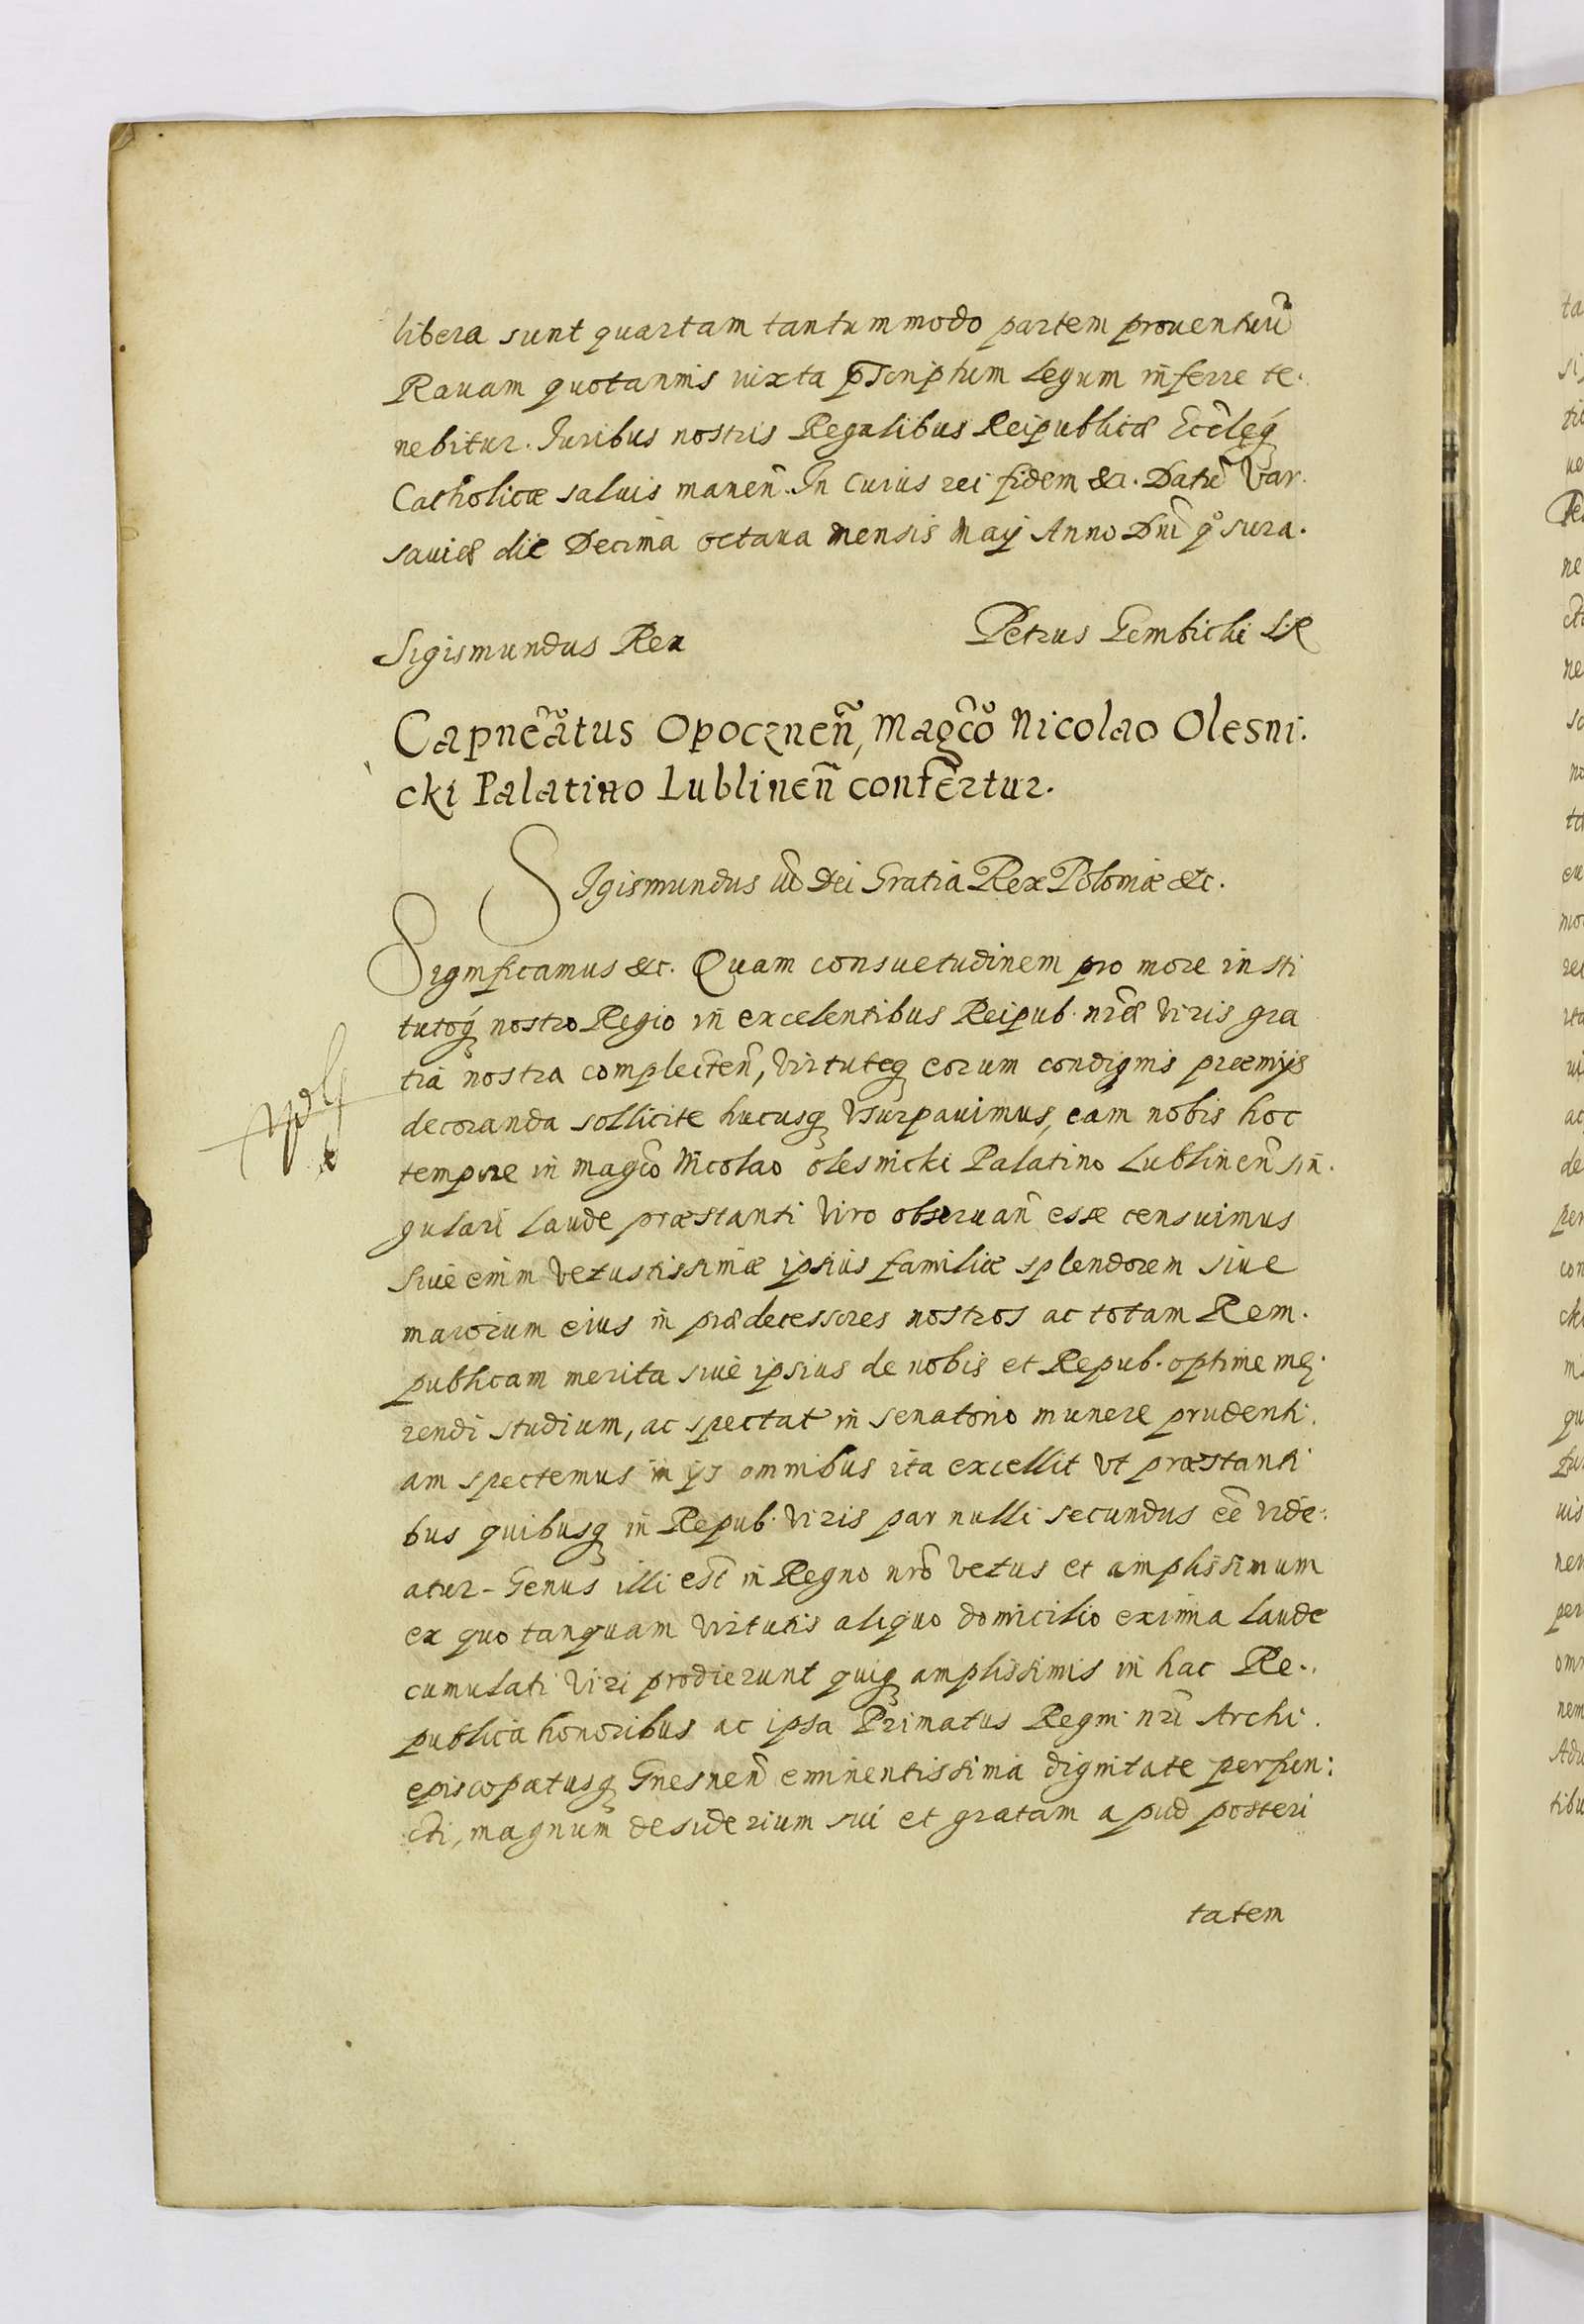 libera sunt quartam tantummodo partem prouentuũ
Rauam quotannis iuxta p̃scriptum legum inferre te.
nebitur. Juribus nostris Regalibus Reipublicæ Eccl̃eq́
Catholicæ saluis maneñ. In cuius rei fidem &c. Datũ Var.
sauiæ die Decima octaua mensis Maij Anno Dnĩ qº sura.
Sigismundus Rex
Petrus Gembicki SR
Capneãtus Opocznen̄, Magcõ Nicolao Olesni:
cki Palatino Lublinen̄ confertur.
SIgismundus iii Dei Gratia Rex Poloniæ &c.
Significamus &c. Quam consuetudinem pro more insti
tutoq́ nostro Regio in excelentibus Reipub. nræ̃ Viris gra
tia nostra complecteñ, Virtuteq eorum condignis præmijs
decoranda sollicite hucusq Vsurpauimus, eam nobis hoc
tempore in magcõ Nicolao olesnicki Palatino Lublineñ sin.
gulari laude præstanti Viro obseruañ esse censuimus
siue enim Vetustissimæ ipsius familiæ splendorem siue
maiorum eius in prædecessores nostros ac totam Rem.
publicam merita siue ipsius de nobis et Repub. optime me.
rendi studium, ac spectat in senatorio munere prudenti.
am spectemus in ijs omnibus ita excellit vt præstanti
bus quibusq in Repub. Viris par nulli secundus eẽ vide:
atur - Genus illi est in Regno nrõ Vetus et amplissimum
ex quo tanquam Virtutis aliquo domicilio eximia laude
cumulati Viri prodierunt quiq amplissimis in hac Re.
publica honoribus ac ipsa Primatus Regni nrĩ Archi.
episcopatusq Gnesneñ eminentissima dignitate perfun:
cti, magnum desiderium sui et gratam apud posteri
tatem